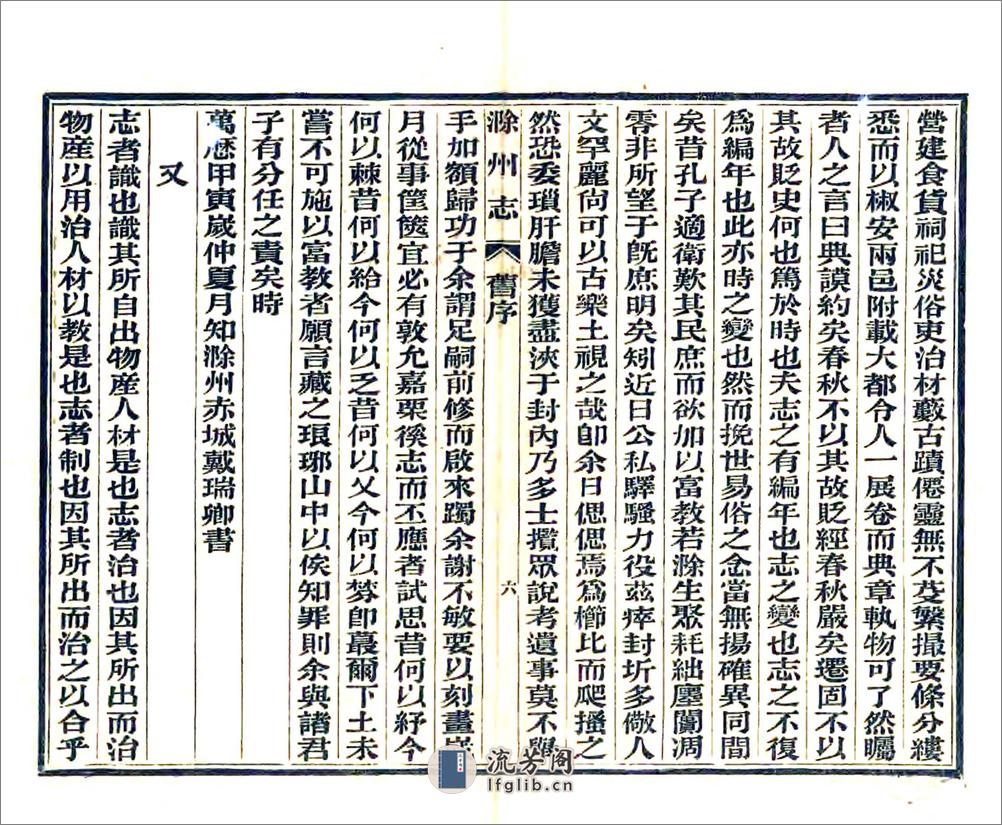 營建食貨祠祀災俗吏治材藪古蹟僊靈無不芟繁撮要條分縷
悉而以椒安兩邑附載大都令人一展卷而典章執物可了然矚
者人之言曰典謨約矣春秋不以其故貶經春秋嚴矣遷固不以
其故貶史何也篤於時也夫志之有編年也志之變也志之不復
爲編年也此亦時之變也然而挽世易俗之念當無揚確異同間
矣昔孔子適衛歎其民庶而欲加以富教若滁生聚耗絀廛闤凋
零非所望于旣庶明矣矧近日公私驛騷力役茲瘁封圻多儆人
文罕麗尙可以古樂土視之哉卽余日偲偲焉爲櫛比而爬搔之
然恐委瑣肝膽未獲盡浹于封內乃多士攬眾說考遺事莫不殫
滁州志
舊序
六
手加額歸功于余謂足嗣前修而啟來躅余謝不敏要以刻畫歲
月從事筐篋宜必有敦允嘉栗徯志而丕應者試思昔何以紓今
何以棘昔何以給今何以乏昔何以乂今何以棼卽蕞爾下土未
嘗不可施以富教者願言藏之瑯琊山中以俟知罪則余與諸君
子有分任之責矣時
萬歷甲寅歲仲夏月知滁州赤城戴瑞卿書
又
志者識也識其所自出物產人材是也志者治也因其所出而治
物產以用治人材以教是也志者制也因其所出而治之以合乎
流芳閣
lfglib.cn